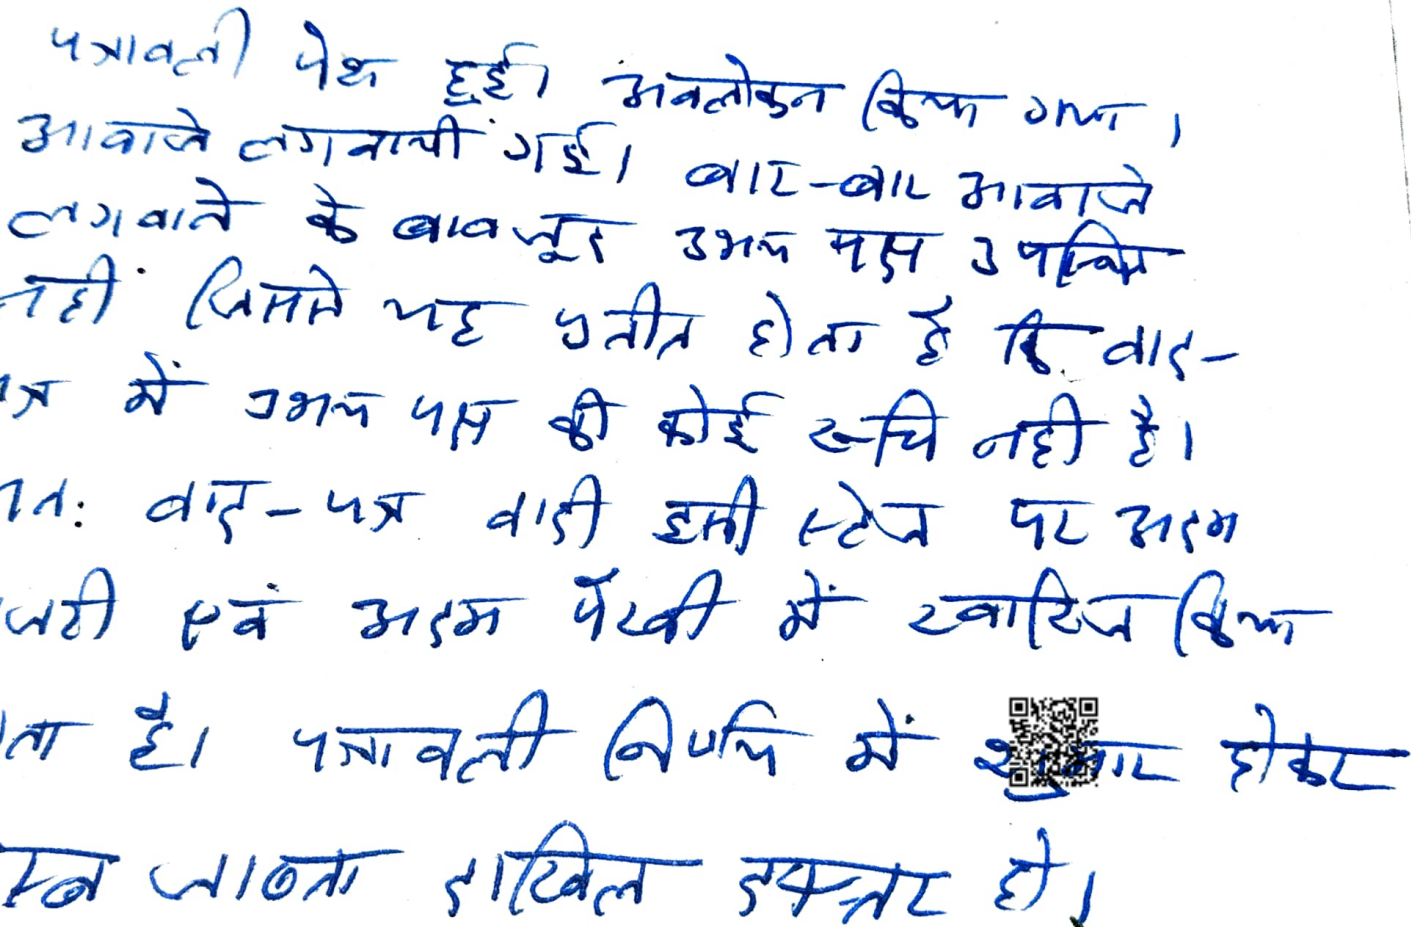 पत्रावली पेश हुई। अवलोकन किया गया।
आवाजे लगवायी गई। बार-बार आवाजे
लगवाने के बावजूद उभय पक्ष उपस्थित
नहीं जिससे यह प्रतीत होता है कि वाद-
पत्र में उभय पक्ष की कोई रूचि नही है।
अत: वाद-पत्र वादी इसी स्टेज पर अदम
हाजरी एवं अदम पैरवी में खारिज किया
जाता है। पत्रावली निर्णय में शुमार होकर
जाब्ता दाखिल दफ्तर हो।